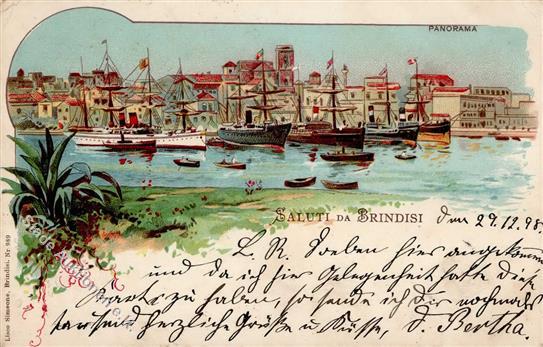 PANORAMA
SALUTI DA BRINDISI
den 29.12.98.
L. R. Soeben hier angekommen
und da ich hier Gelegenheit hatte diese
Karte zu haben, so sende ich Dir nochmals
tausend herzliche Grüße u Küsse, d. Bertha.
Lisco Simeone, Brindisi. Nr. 989